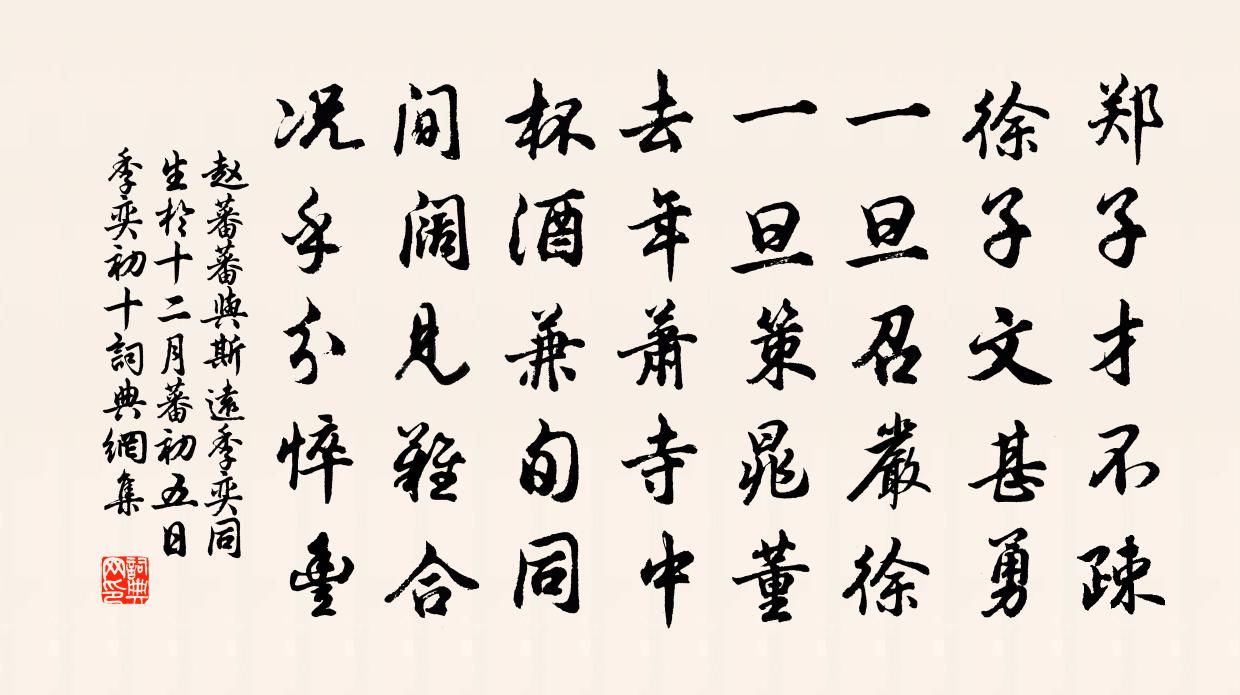 郑子才不疎
徐子文甚勇
一旦召嚴徐
一旦策晁董
去年萧寺中
杯酒兼旬同
间阔见難合
况乎分悴豊
赵蕃蕃與斯遠季奕同
生於十二月蕃初五日
季奕初十詞典網集
詞典网印